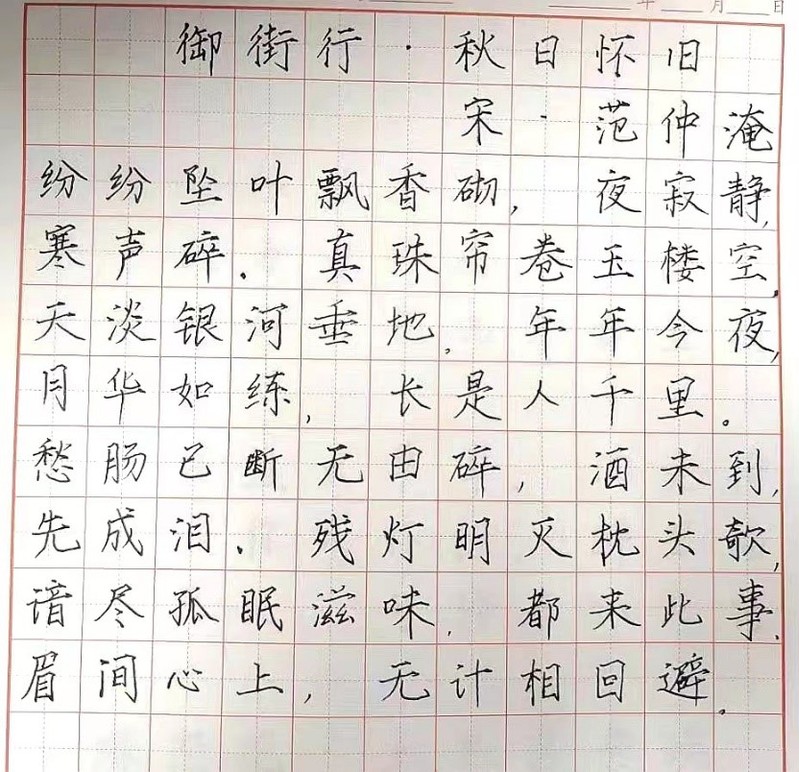 年 月 日
御街行·秋日怀旧
宋·范仲淹
纷纷坠叶飘香砌,夜寂静,
寒声碎.真珠帘卷玉楼空,
天淡银河垂地。年年今夜,
月华如练,长是人千里。
愁肠已断无由碎,酒未到,
先成泪.残灯明灭枕头欹,
谙尽孤眠滋味.都来此事.
眉间心上,无计相回避。